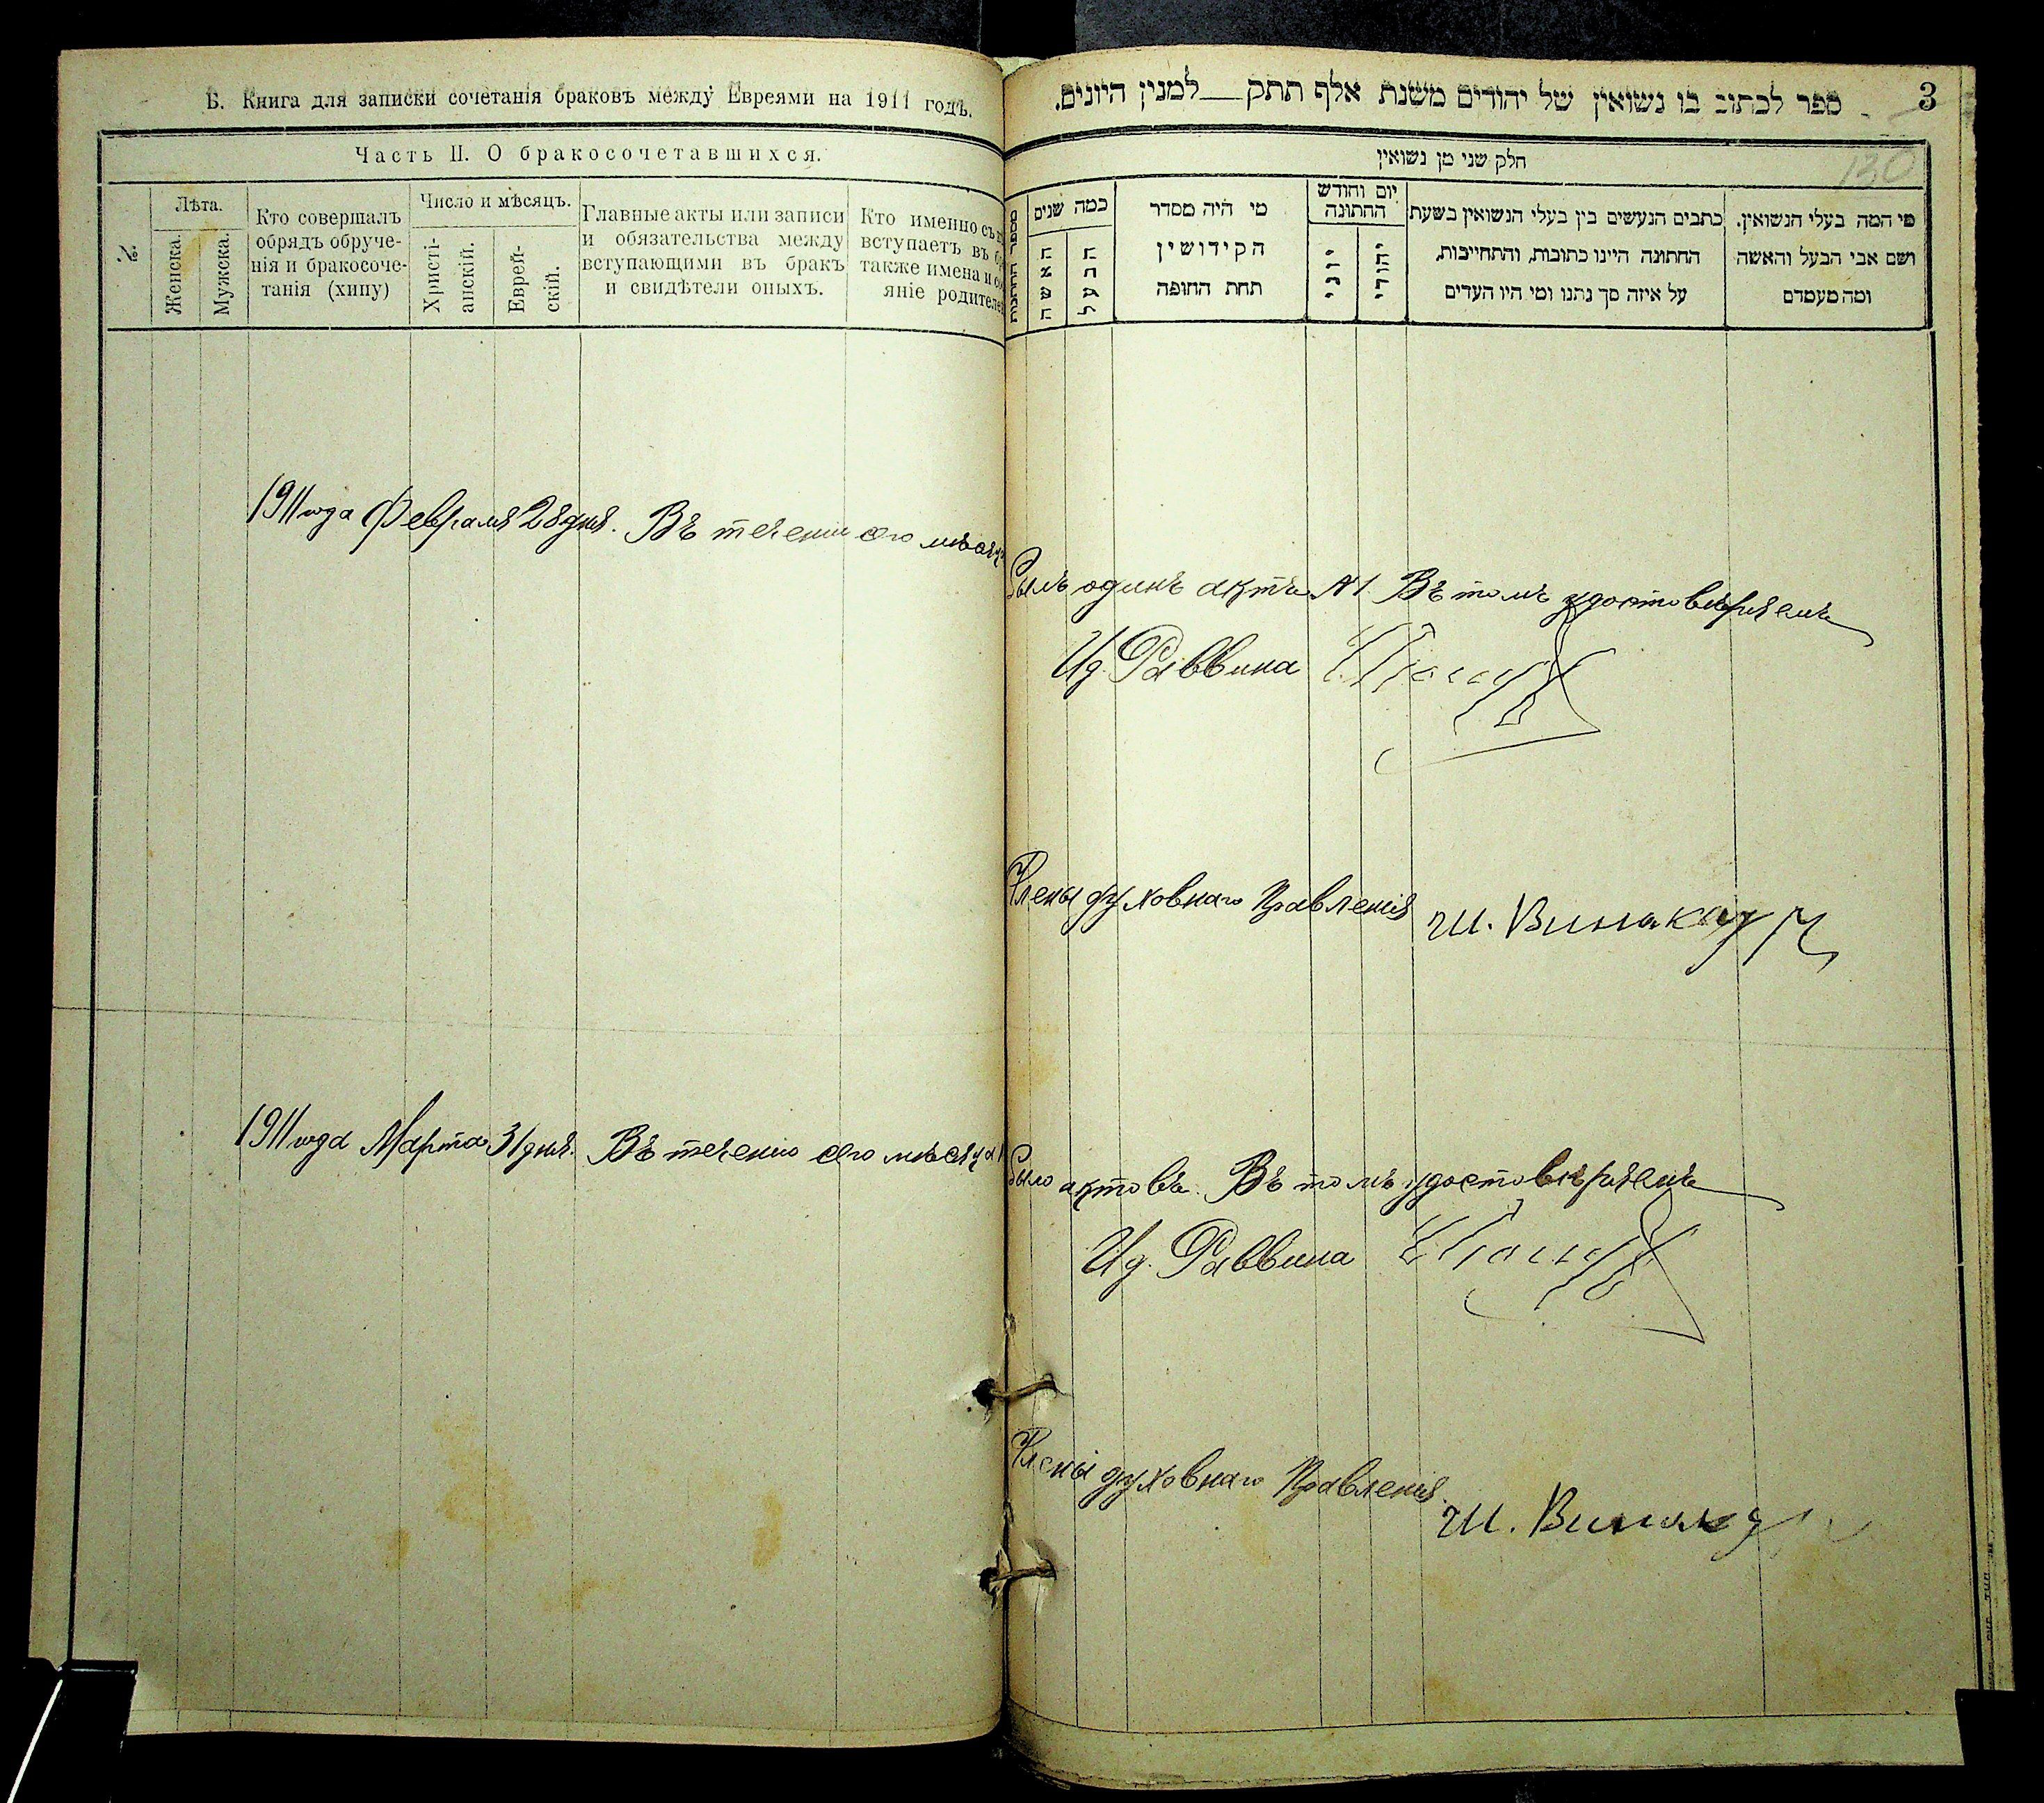 Б. Книга для записки сочетанія браковъ между Евреями на 1911 годъ.
Часть II. О бракосочетавшихся.
№.
Лѣта.
Женска.
Мужска.
Кто совершалъ
обрядъ обруче-
нія и бракосоче-
танія (хипу)
Число и мѣсяцъ.
Христі-
анскій.
Еврей-
скій.
Главные акты или записи
и обязательства между
вступающими въ бракъ
и свидѣтели оныхъ.
Кто именно съ
вступаетъ въ
также имена и
яніе родителе
1911 года Февраля 28 дня. Въ теченіи сего мѣсяца
1911 года Марта 31 дня. Въ теченіи сего мѣсяца
3
ספר לכתוב בו נשואין של יהודים משנת אלף תתק למנין היונים.
130
חלק שני מן נשואין
מי המה בעלי הנשואין.
ושם אבי הבעל והאשה
ומה מעמדם
כתבים הנעשים בין בעלי הנשואין בשעת
החתונה היינו כתובות, והתחייבות,
על איזה סך נתנו ומי היו העדים
יום וחודש
החתונה
יהודי
יוני
מי היה מסדר
הקידושין
תחת החופה
כמה שנים
הבעל
האשה
מספר החתונות
былъ одинъ актъ №1. Въ томъ удостовѣряемъ
И д. Раввина
Члены духовнаго Правленія Ш. Винокур
было актовъ. Въ томъ удостовѣряемъ
И д. Раввина
Члены духовнаго Правленія Ш. Винокур